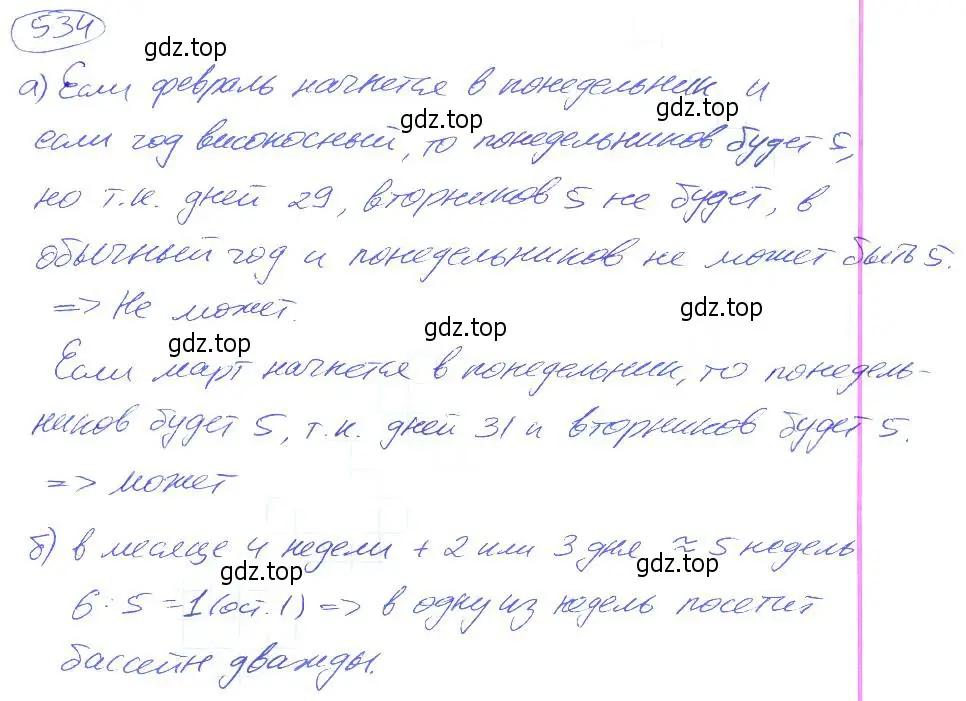 534
gdz.top
а) Если февраль начнется в понедельник и
gdz.top gdz.top
если год високосный, то понедельников будет 5,
но т.к. дней 29, вторников 5 не будет, в
обычный год и понедельников не может быть 5.
=> Не может.
gdz.top gdz.top gdz.top
Если март начнется в понедельник, то понедель-
ников будет 5, т.к. дней 31 и вторников будет 5.
=> может
б) в месяце 4 недели + 2 или 3 дня ≈ 5 недель
gdz.top gdz.top
6 : 5 = 1 (ост. 1) => в одну из недель посетит
бассейн дважды.